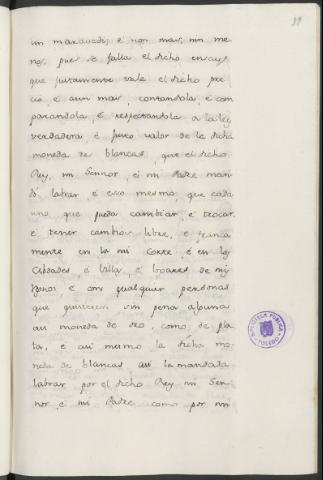 39
un maravedi, é non mas, nin me
nos, pues se falla el dicho ensay
que justamente vale el dicho pre
cio é aun mas, contandola, é com
parandola, é respectandola a la ley
verdadera, é justo valor de la dicha
moneda de blancas, que el dicho
Rey, mi Sennor, é mi Padre man
dó labrar é esso mesmo, que cada
uno que pueda cambiar, é trocar
é tener cambio libre, é franca
mente en la mi Corte é en las
Cibdades, é Villas, é Logares de mis
Regnos é con qualquier personas
que quisieren sin pena alguna
asi moneda de oro, como de pla
ta, é asi mesmo la dicha mo
neda de blancas asi la mandada
labrar por el dicho Rey mi Sen
nor é mi Padre como por mi
BIBLIOTECA PUBLICA
TOLEDO